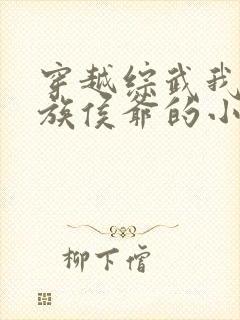 穿越综武我
族侯爷的小
柳下僧